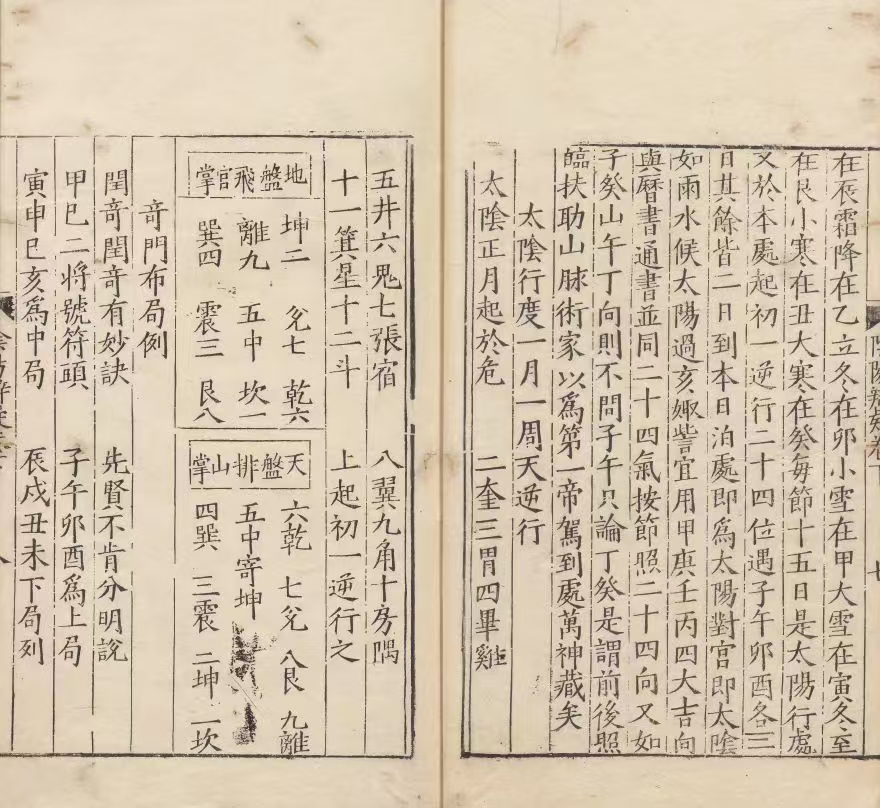 在辰霜降在乙立冬在卯小雪在甲大雪在寅冬至
在艮小寒在丑大寒在癸每節十五日是太陽行處
又於本處起初一逆行二十四位遇子午卯酉各三
日其餘皆二日到本日泊處即為太陽對宮即太陰
如雨水候太陽過亥娵訾宜用甲庚壬丙四大吉向
與曆書通書並同二十四氣按節照二十四向又如
子癸山午丁向則不問子午只論丁癸是謂前後照
臨扶助山脉術家以為第一帝駕到處萬神藏矣
太陰行度一月一周天逆行
太陰正月起於危 二奎三胃四畢雞
陰陽辨疑卷下 七
五井六鬼七張宿 八翼九角十房隅
十一箕星十二斗 上起初一逆行之
地盤飛宮掌
坤二 兌七 乾六
離九 五中 坎一
巽四 震三 艮八
天盤排山掌
六乾 七兌 八艮 九離
五中寄坤
四巽 三震 二坤 一坎
奇門布局例
閏奇閏奇有妙訣 先賢不肯分明說
甲巳二將號符頭 子午卯酉為上局
寅申巳亥為中局 辰戌丑未下局列